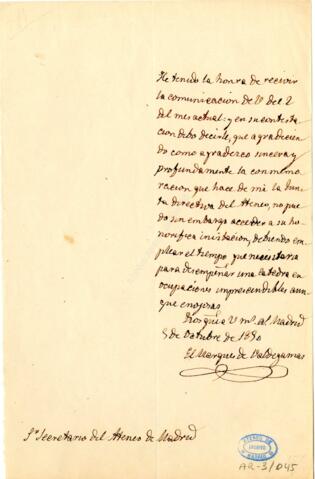 He tenido la honra de recivir
la comunicacion de V. del 2
del mes actual: y en su contesta
cion debo decirle, que agradecien
do como agradezco sincera y
profundamente la conmemo
racion que hace de mi la Junta
directiva del Ateneo, no pue
do sin embargo acceder a su ho
norifica invitacion, debiendo em
plear el tiempo que necesitaria
para desempeñar una catedra en
ocupaciones imprescindibles aun
que enojosas
Dios gue a V. ms. as. Madrid
5 de Octubre de
El Marques de Valdegamas
Sr. Secretario del Ateneo de Madrid
ATENEO DE
MADRID